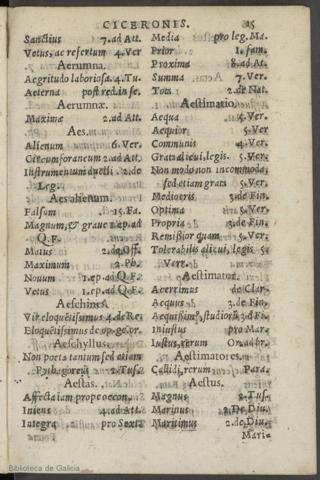 CICERONIS. 25
Sanctius 7.ad Att.
Vetus, ac refertum 4.Ver
Aerumna.
Aegritudo laboriosa. 4.Tu.
Aeterna post red.in se.
Aerumnæ.
Maximæ 2.ad Att.
Aes.
Alienum 6.Ver.
Circumforaneum 2.ad Att.
Instrumentum 2.de
Leg.
Aes alienum.
Falsum 15.Fa.
Magnum, & graue 1.ep.ad
Q.F.
Maius 2.de Off.
Maximum 2.Ph.
Nouum 1.ep.ad Q.F.
Vetus 1.ep.ad Q.F.
Aeschines.
Vir eloquētissimus 4.de Re.
Eloquētissimus de op.ge.or.
Aeschyllus.
Non poeta tantum sed etiam
Pythagoreus 2.Tus.
Aestas.
Affecta iam prope oecon.
Iniens 4.ad Att.
Integra pro Sext
Media pro leg.Ma.
Prior 1.fam.
Proxima 8.ad At.
Summa 7.Ver.
Tota 2.de Nat.
Aestimatio.
Aequa 5.Ver
Aequior 5.Ver
Communis 4.Ver.
Grata alicui, legis. 5.Ver.
Non modo non incommoda,
sed etiam grata 5.Ver.
Mediocris 3.de Fin.
Optima 5.Ver.
Propria 3.de Fin.
Remissior quam 5.Ver.
Tolerabilis alicui, legis 5.
Verr.
Aestimator.
Acerrimus de Clar.
Aequus 3.de Fin.
Aequissimꝰ, studiorū 3.d Fi.
Iniustus pro Mar.
Iustus, rerum Or.ad br.
Aestimatores.
Callidi, rerum Para.
Aestus.
Magnus 2.Tus.
Marinus 2.De Diu.
Maritimus 2.de Diu.
Mari-
Biblioteca de Galicia